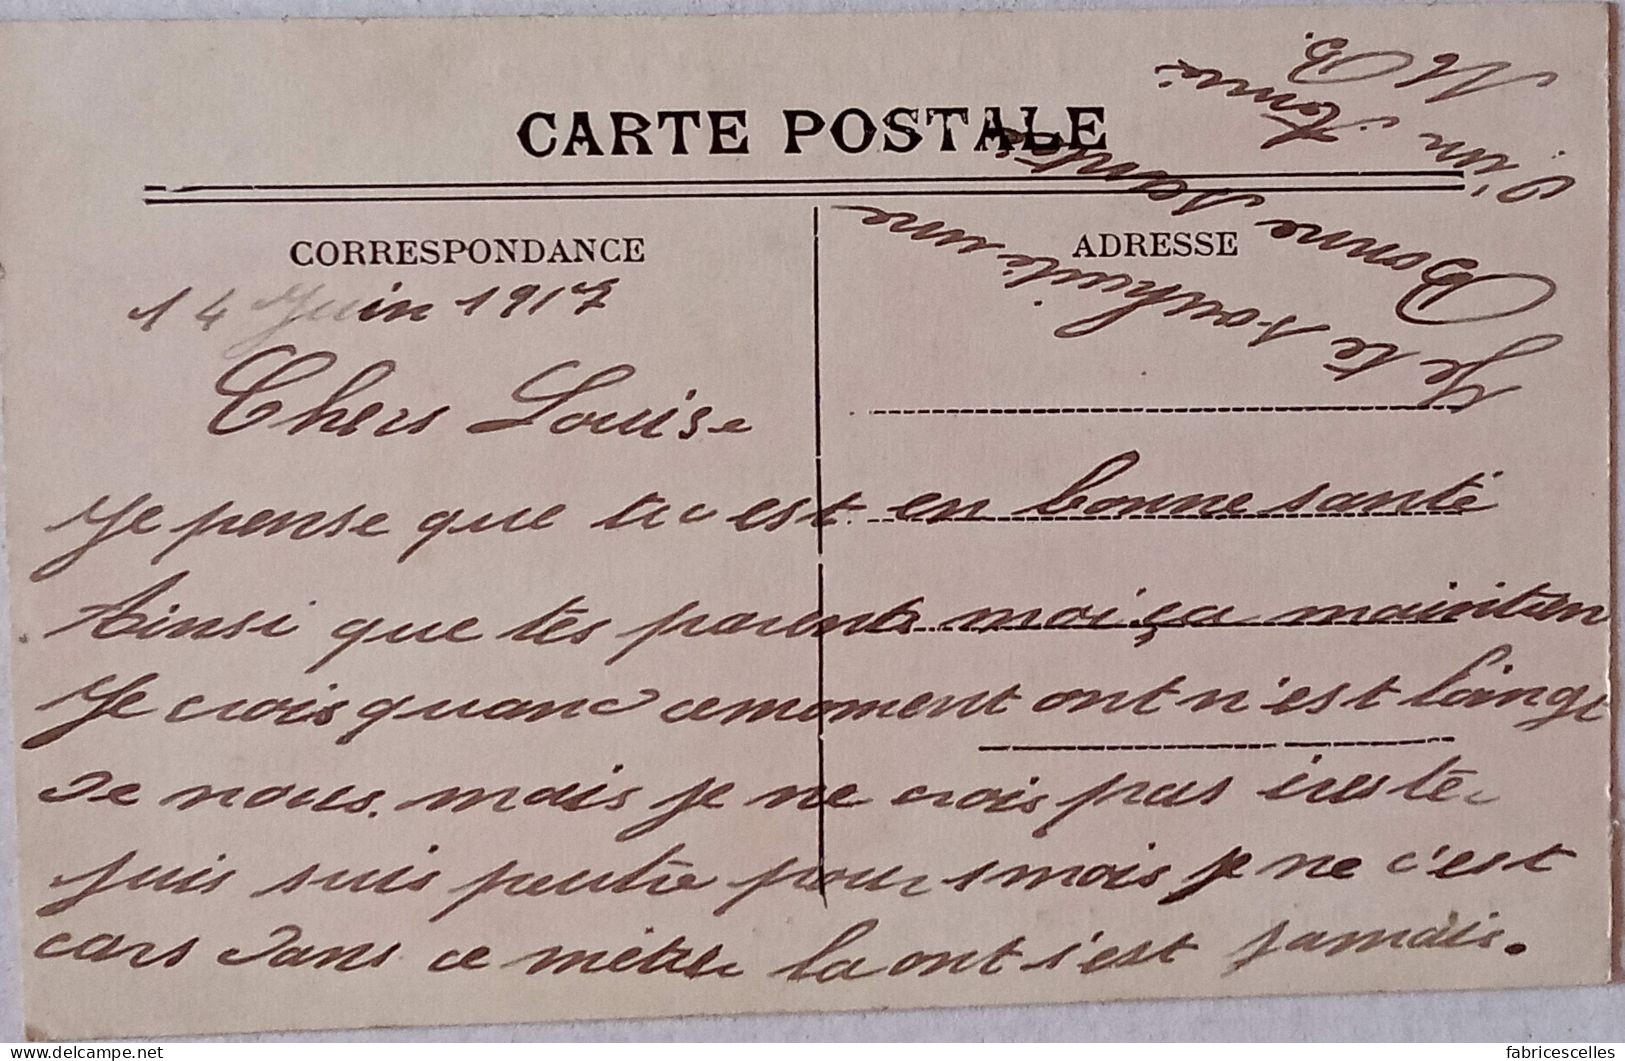 CARTE POSTALE
CORRESPONDANCE
ADRESSE
14 Juin 1917
Chers Louise
Je pense que tu est en bonne santé
Ainsi que tes parents moi ça maintien
Je crois quanc cemoment ont n'est loing
de nous. mais je ne crois pas
juis suis peutre pour 1 mois je ne c'est
cars dans ce métier la ont s'est jamais.
Je te souhaite une
Bonne Santé
d'un Ami
M B.
fabricescelles